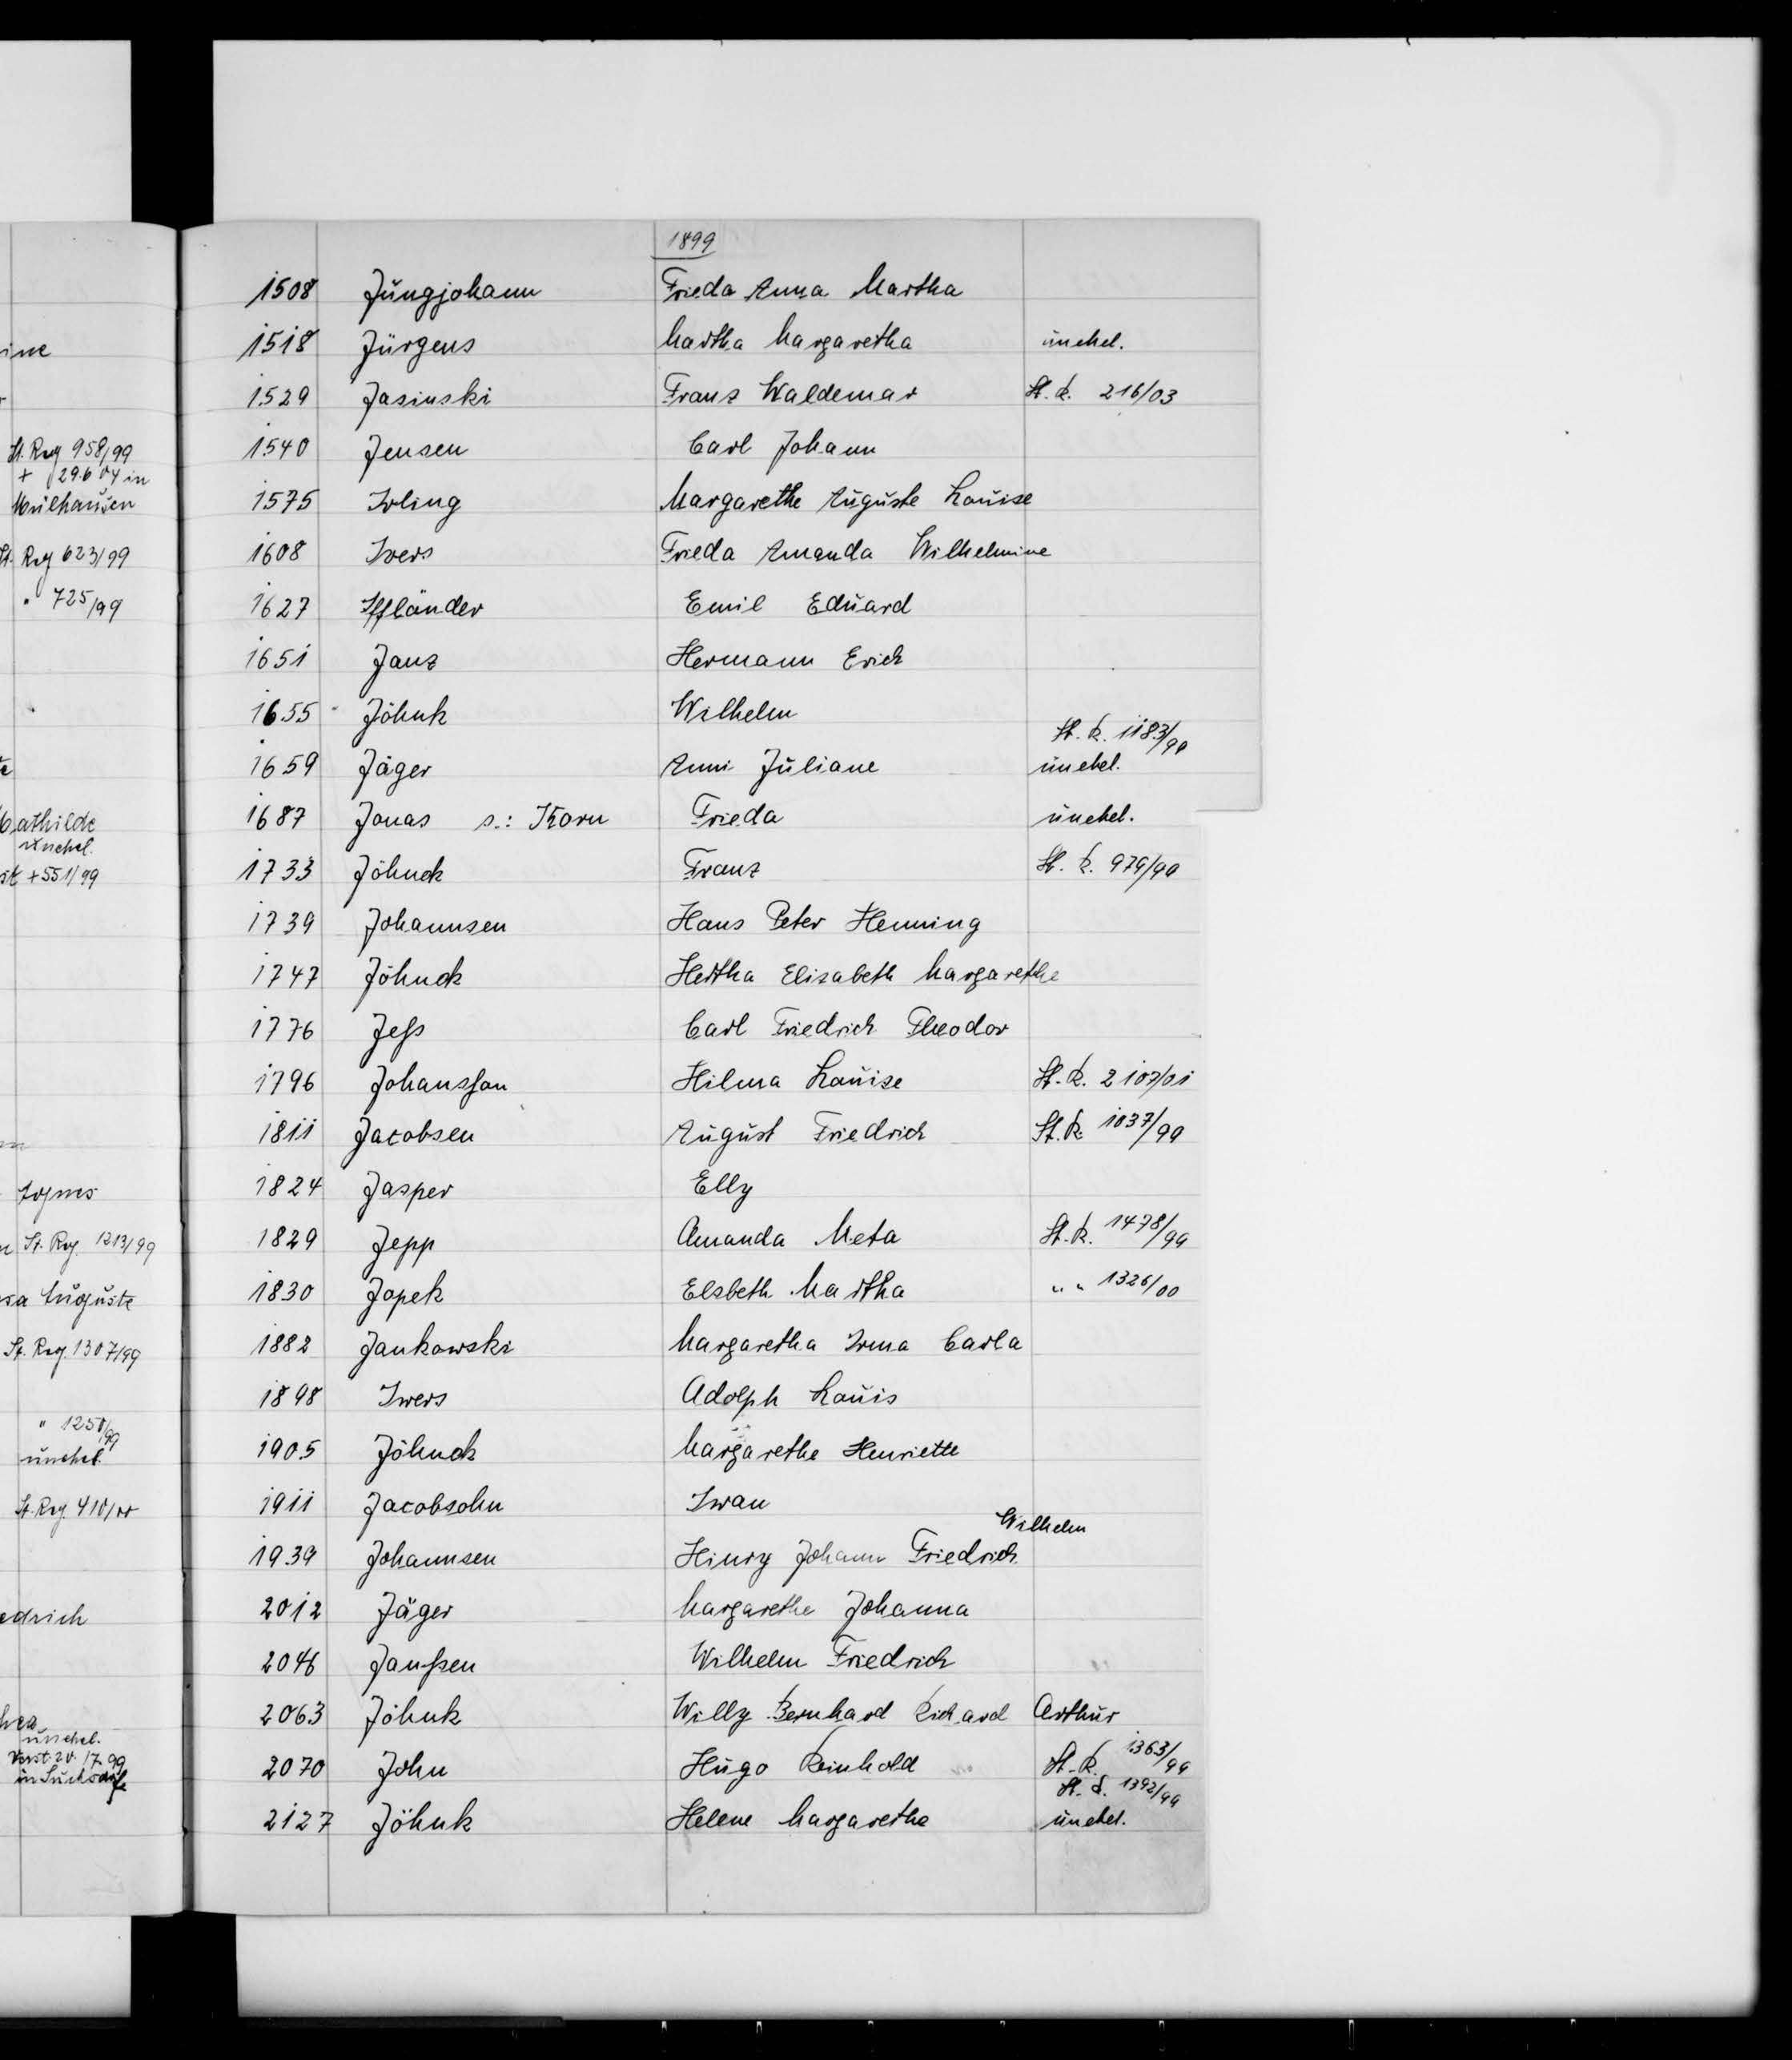 ine
St. Reg 958/99
+ 29.6 04 in
Mülhausen
St. Reg 623/99
" 725/99
Mathilde
unehel.
+ 551/99
Agnes
St. Reg. 1213/99
Auguste
St. Reg. 1307/99
" 1250/99
unehel.
St. Reg. 410/00
edrich
unehel.
1899
1508 Jungjohann Frieda Anna Martha
1518 Jürgens Martha Margaretha unehel.
1529 Jasinski Franz Waldemar St. R. 216/03
1540 Jensen Carl Johann
1575 Irling Margarethe Auguste Louise
1608 Ivers Frieda Amanda Wilhelmine
1627 Iffländer Emil Eduard
1651 Janz Hermann Erich
1655 Jöhnk Wilhelm
St. R. 1183/99
1659 Jäger Anni Juliane unehel.
1687 Jonas s.: Korn Frieda unehel.
1733 Jöhnck Franz St. R. 979/99
1739 Johannsen Hans Peter Henning
1747 Jöhnck Hertha Elisabeth Margarethe
1776 Jeß Carl Friedrich Theodor
1796 Johansson Hilma Louise St. R. 2107/01
1811 Jacobsen August Friedrich St. R. 1037/99
1824 Jasper Elly
1829 Jepp Amanda Meta St. R. 1478/99
1830 Jopek Elsbeth Martha " " 1326/00
1882 Jankowski Margaretha Irma Carla
1898 Iwers Adolph Louis
1905 Jöhnck Margarethe Henriette
1911 Jacobsohn Iwan
Wilhelm
1939 Johannsen Hinry Johann Friedrich
2012 Jäger Margarethe Johanna
2046 Janßen Wilhelm Friedrich
2063 Jöhnk Willy Bernhard Richard Arthur
2070 John Hugo Reinhold St. R. 1363/99
St. R. 1392/99
2127 Jöhnk Helene Margaretha unehel.